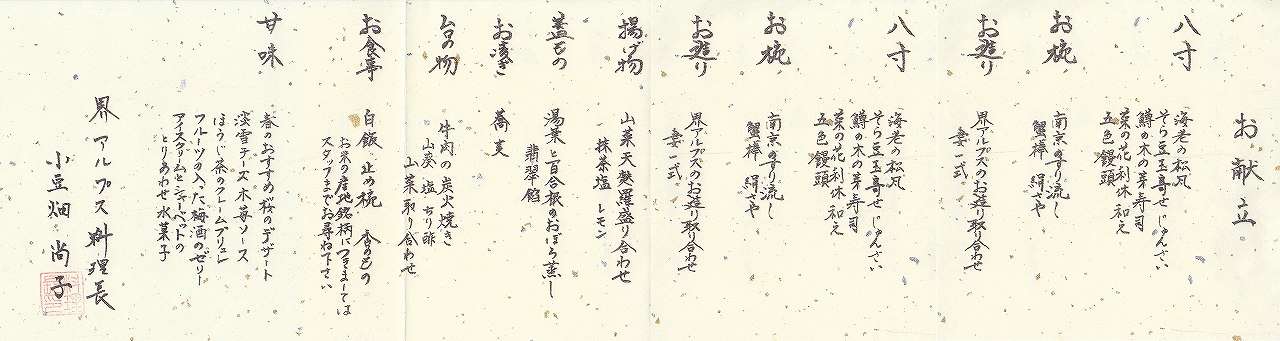 お献立
八寸
海老の松風
そら豆玉寄せ じゅんさい
鱒の木の芽寿司
菜の花利休和え
五色饅頭
お椀
南京のすり流し
蟹棒 絹さや
お造り
界アルプスのお造り取り合わせ
妻一式
八寸
海老の松風
そら豆玉寄せ じゅんさい
鱒の木の芽寿司
菜の花利休和え
五色饅頭
お椀
南京のすり流し
蟹棒 絹さや
お造り
界アルプスのお造り取り合わせ
妻一式
揚げ物
山菜天麩羅盛り合わせ
抹茶塩 レモン
蓋もの
湯葉と百合根のおぼろ蒸し
翡翠餡
お凌ぎ
蕎麦
台の物
牛肉の炭火焼き
山炭塩 ちり酢
山菜取り合わせ
お食事
白飯 止め椀 香のもの
お米の産地銘柄につきましては
スタッフまでお尋ね下さい
甘味
春のおすすめ桜のデザート
淡雪チーズ木苺ソース
ほうじ茶のクレームブリュレ
フルーツの入った梅酒のゼリー
アイスクリームとシャーベットの
とりあわせ 水菓子
界 アルプス 料理長
小豆畑 尚子